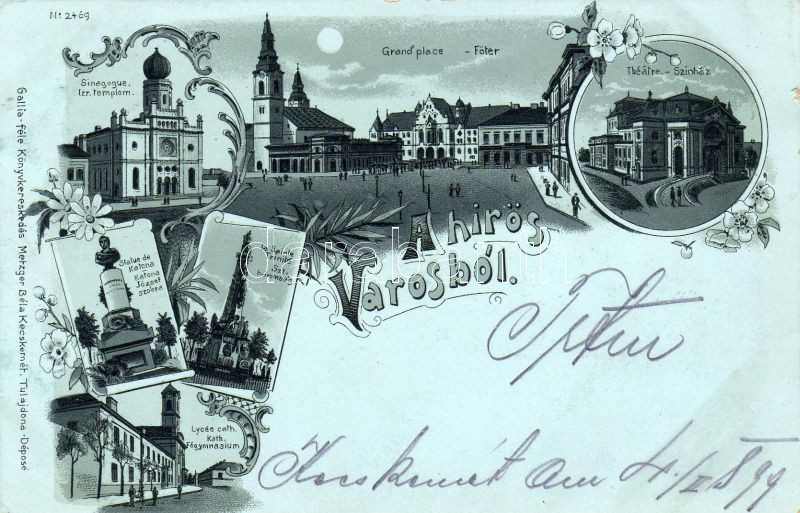 No: 2469
Sinagogue.
Izr. templom.
Grand' place - Főter
Théâtre. - Szinház
Statue de
Katona
Katona
József
szobra
Sainte
Trinité
Szt.
háromság
A hirös
Városból.
Lycée cath.
Kath.
Főgymnásium
Gallia-féle Könyvkereskedés Metzger Béla Kecskemét. Tulajdona-Déposé
Kecskemét am 4/II 899